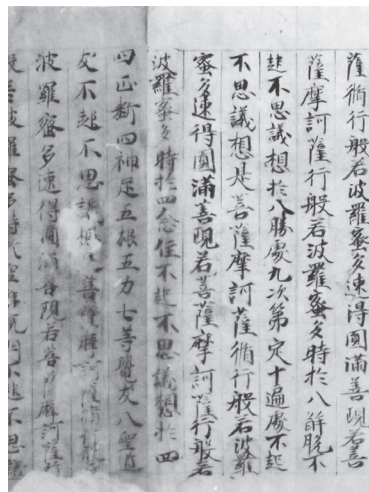 薩脩行般若波羅蜜多速得圓滿善現若菩
薩摩訶薩行般若波羅蜜多時於八解脫不
起不思議想於八勝處九次第定十遍處不起
不思議想是菩薩摩訶薩脩行般若波羅
蜜多速得圓滿善現若菩薩摩訶薩行般若
波羅蜜多時於四念住不起不思議想於四
四正斷四神足五根五力七等覺支八聖道
支不起不思議想是菩薩摩訶薩脩行般若
波羅蜜多速得圓滿善現若菩薩摩訶薩行
般若波羅蜜多時於空解脫門不起不思議